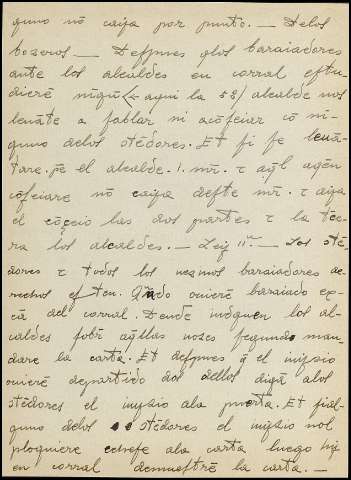 guno nõ caya por punto. — Delos
bozeros — Despues q̃los baraiadores
ante los alcaldes en corral estu
dierẽ nigũ (← aqui la 58) alcalde nos
leuãte a fablar ni acõseiar cõ ni-
guno delos otẽdores. Et si se leuã-
tare. pẽ el alcalde .i. mr̃. τ aq̃l aqen
cõseiare nõ caya deste mr̃. τ aya
el cõçeio las dos partes τ la tẽr-
ra los alcaldes. — Ley IIª — Los otẽ-
dores τ todos los baraiadores de-
rechos estẽ. Qñdo ouierẽ baraiado
del corral. Dende los al-
caldes sobr̃ aq̃llas uozes segundo man-
dare la carta. Et despues q̃ el
ouierẽ departido dos dellos digã alos
otẽdores el ala puerta. Et si al-
guno delos otẽdores el nol
ploguiere echese ala carta luego
en corral demuestrẽ la carta. —